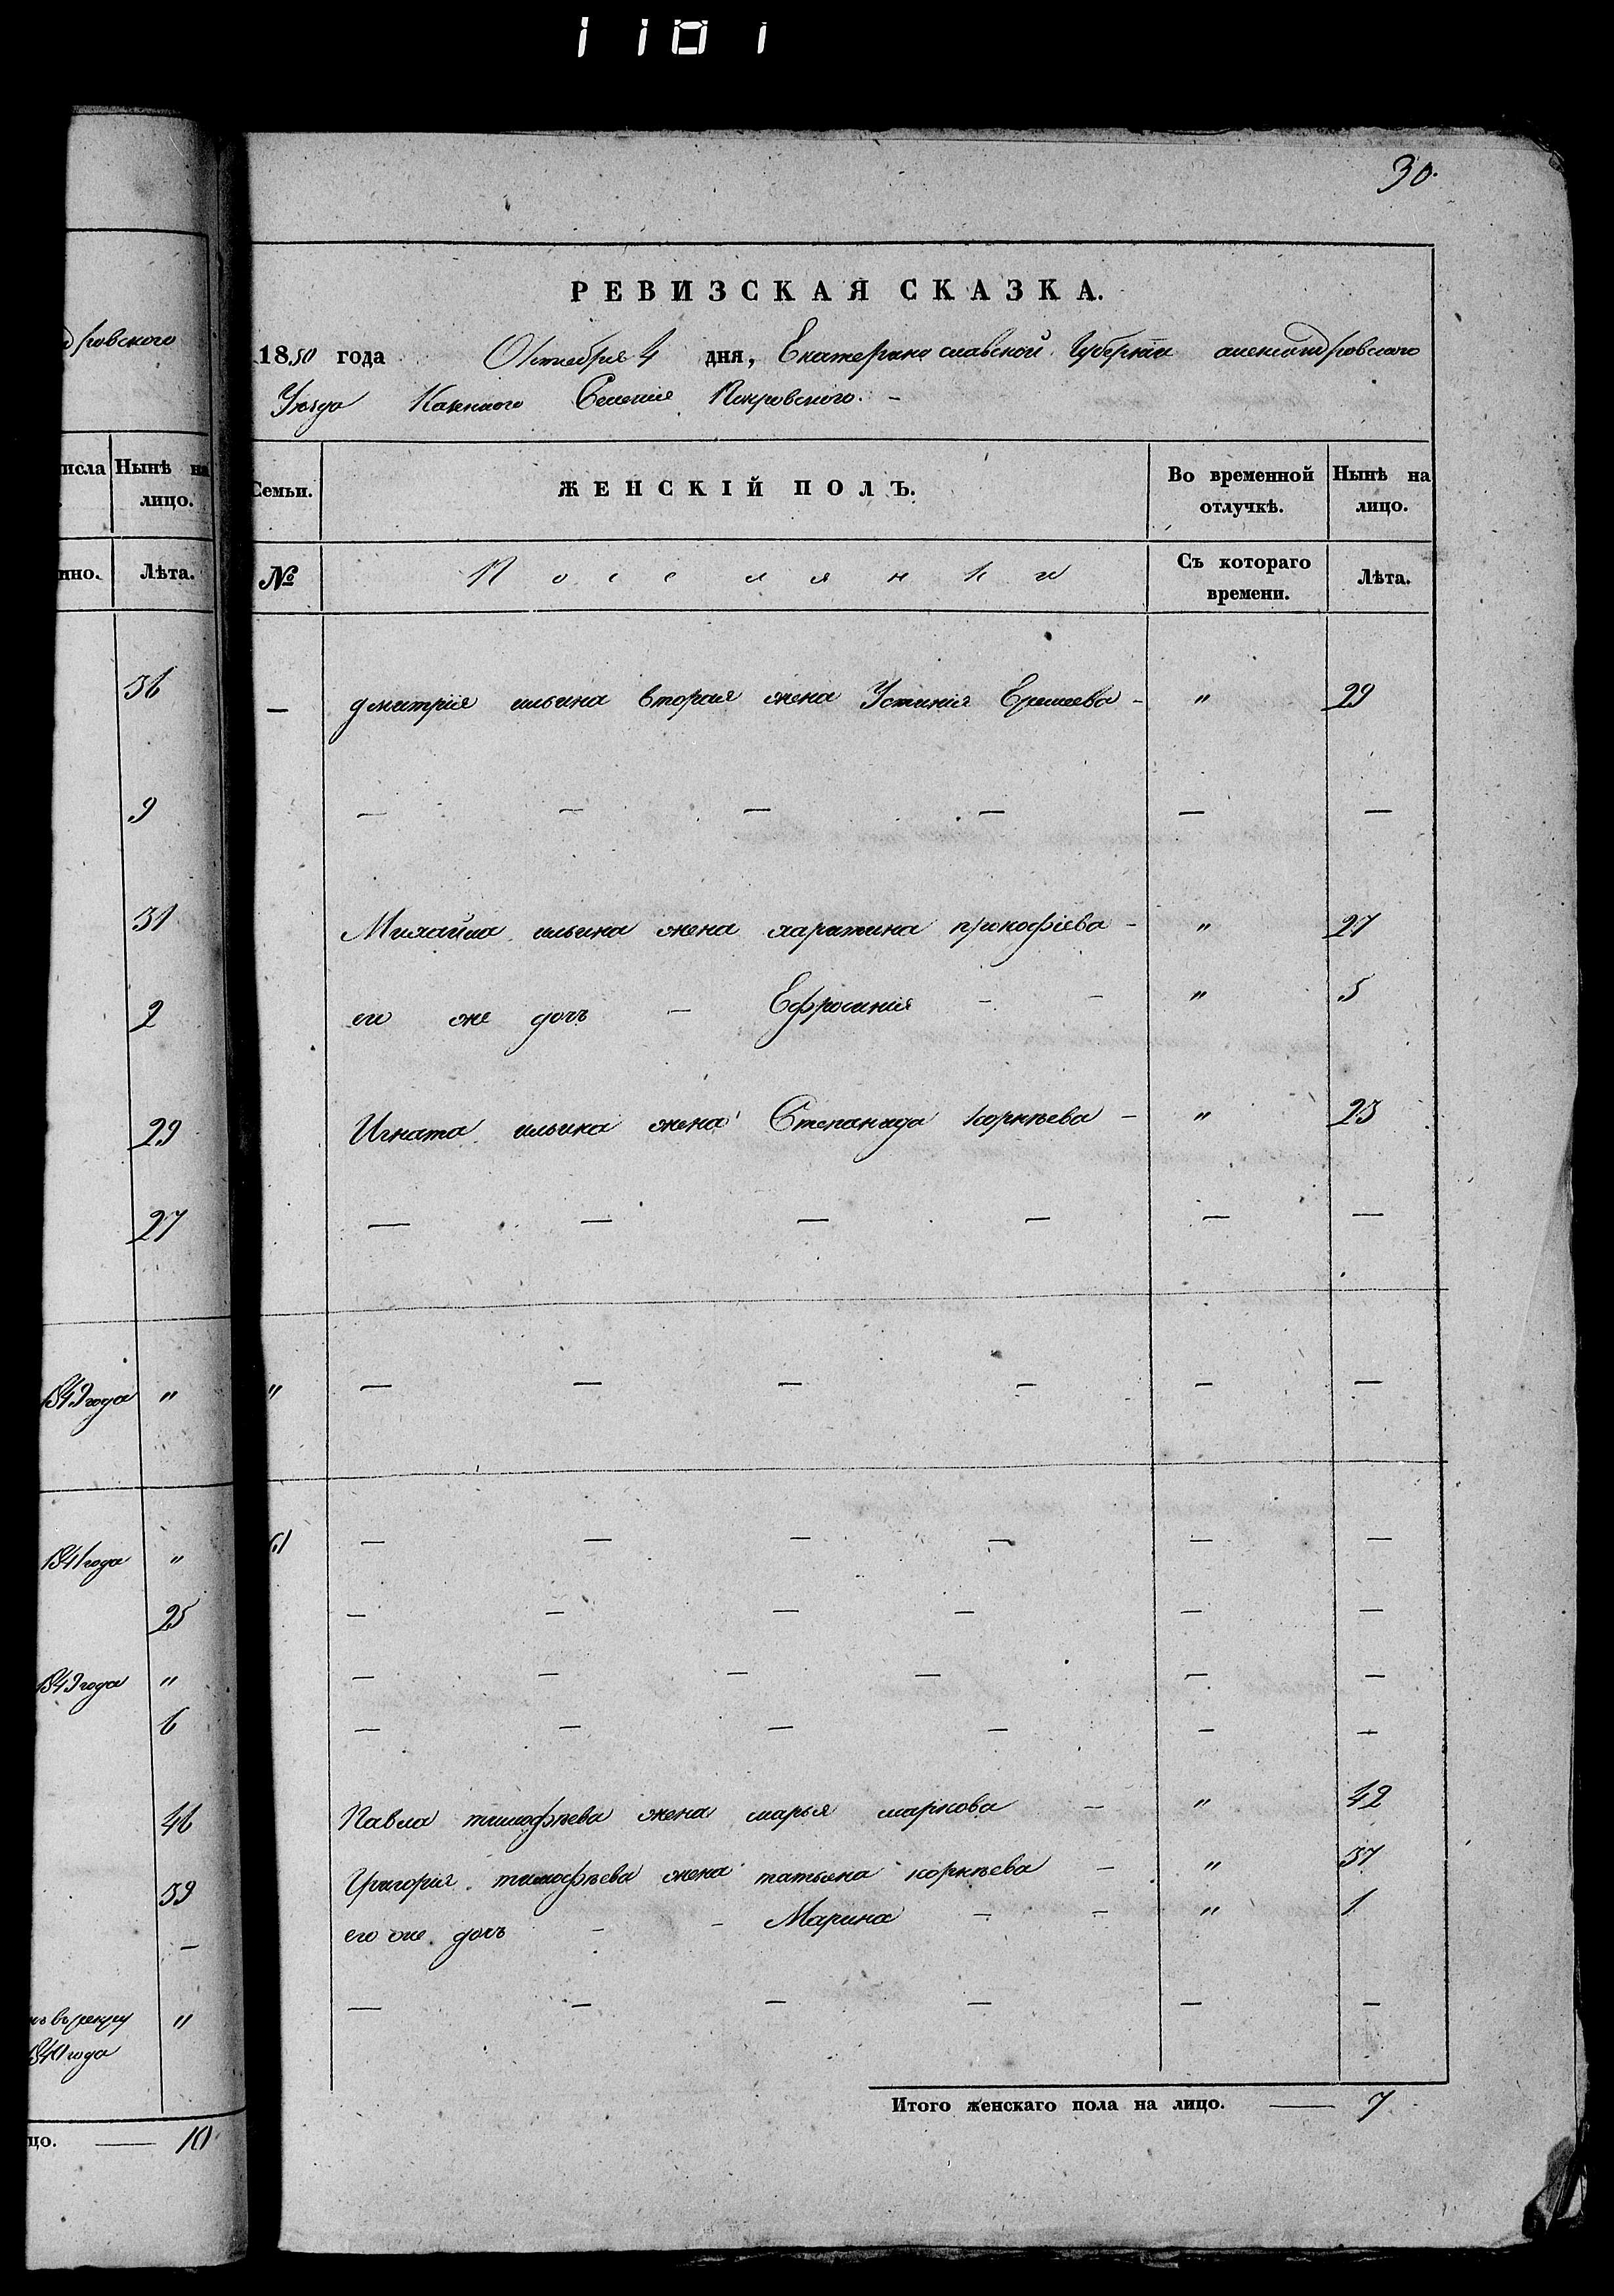 1181
30.
РЕВИЗСКАЯ СКАЗКА.
1850 года Октября 4 дня, Екатеринославской Губернии александровского
Уезда Казенного Селения Покровского. –
Семьи.
ЖЕНСКІЙ ПОЛЪ.
Во временной отлучкѣ.
Нынѣ на лицо.
№
Поселянки
Съ котораго времени.
Лѣта.
— дмитрия ильина вторая жена Устиния – " 29
— — — — — —
Михайла ильина жена харитина прокофіева – " 27
его же дочь – Ефросиния – – " 5
Игната ильина жена Степанида корнѣева – " 23
— — — — — —
" — — — — — —
61 — — — — — —
— — — — — —
— — — — — —
— — — — — —
Павла тимофѣева жена марья маркова – " 42
Григория тимофѣева жена татьяна корнѣева – " 37
его же дочь – – Марина – – " 1
— — — — — —
Итого женскаго пола на лицо. — 7
дровского
исла
Нынѣ на лицо.
нно.
Лѣта.
36
9
31
2
29
27
1849 года "
1841 года "
25
1849 года "
6
46
39
–
"
1840 года
цо. — 10